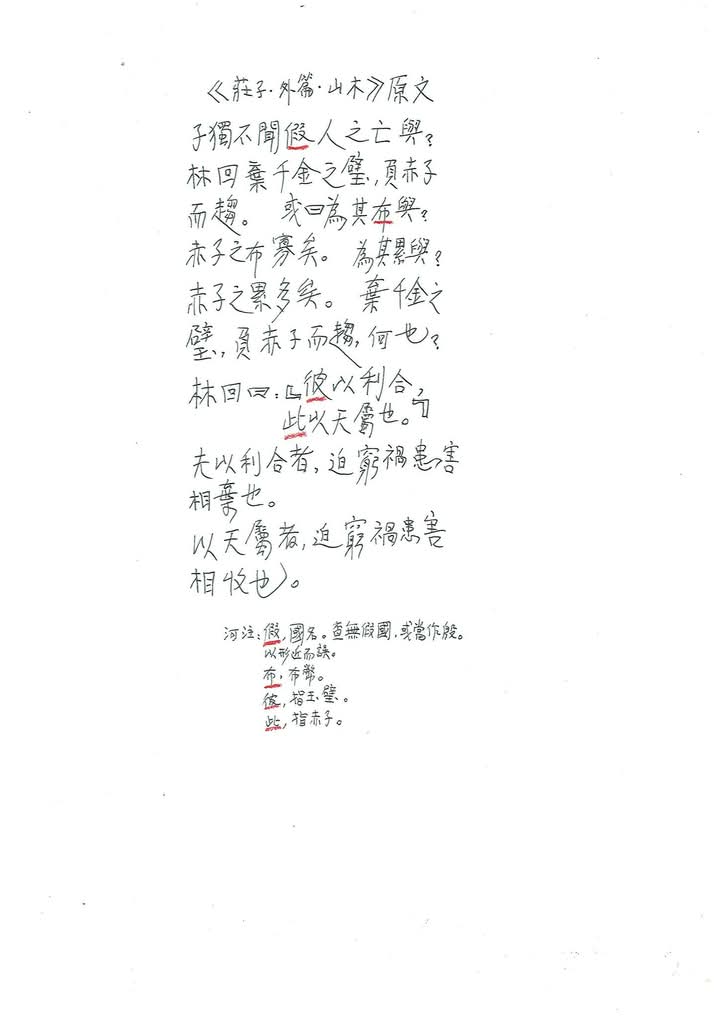 《莊子·外篇·山木》原文
子獨不聞假人之亡與？
林回棄千金之璧，負赤子
而趨。 或曰為其布與？
赤子之布寡矣。 為其累與？
赤子之累多矣。 棄千金之
璧，負赤子而趨，何也？
林回曰：「彼以利合，
此以天屬也。」
夫以利合者，迫窮禍患害
相棄也。
以天屬者，迫窮禍患害
相收也）。
河注：假，國名。查無假國，或當作殷。
以形近而誤。
布，布幣。
彼，指玉璧。
此，指赤子。